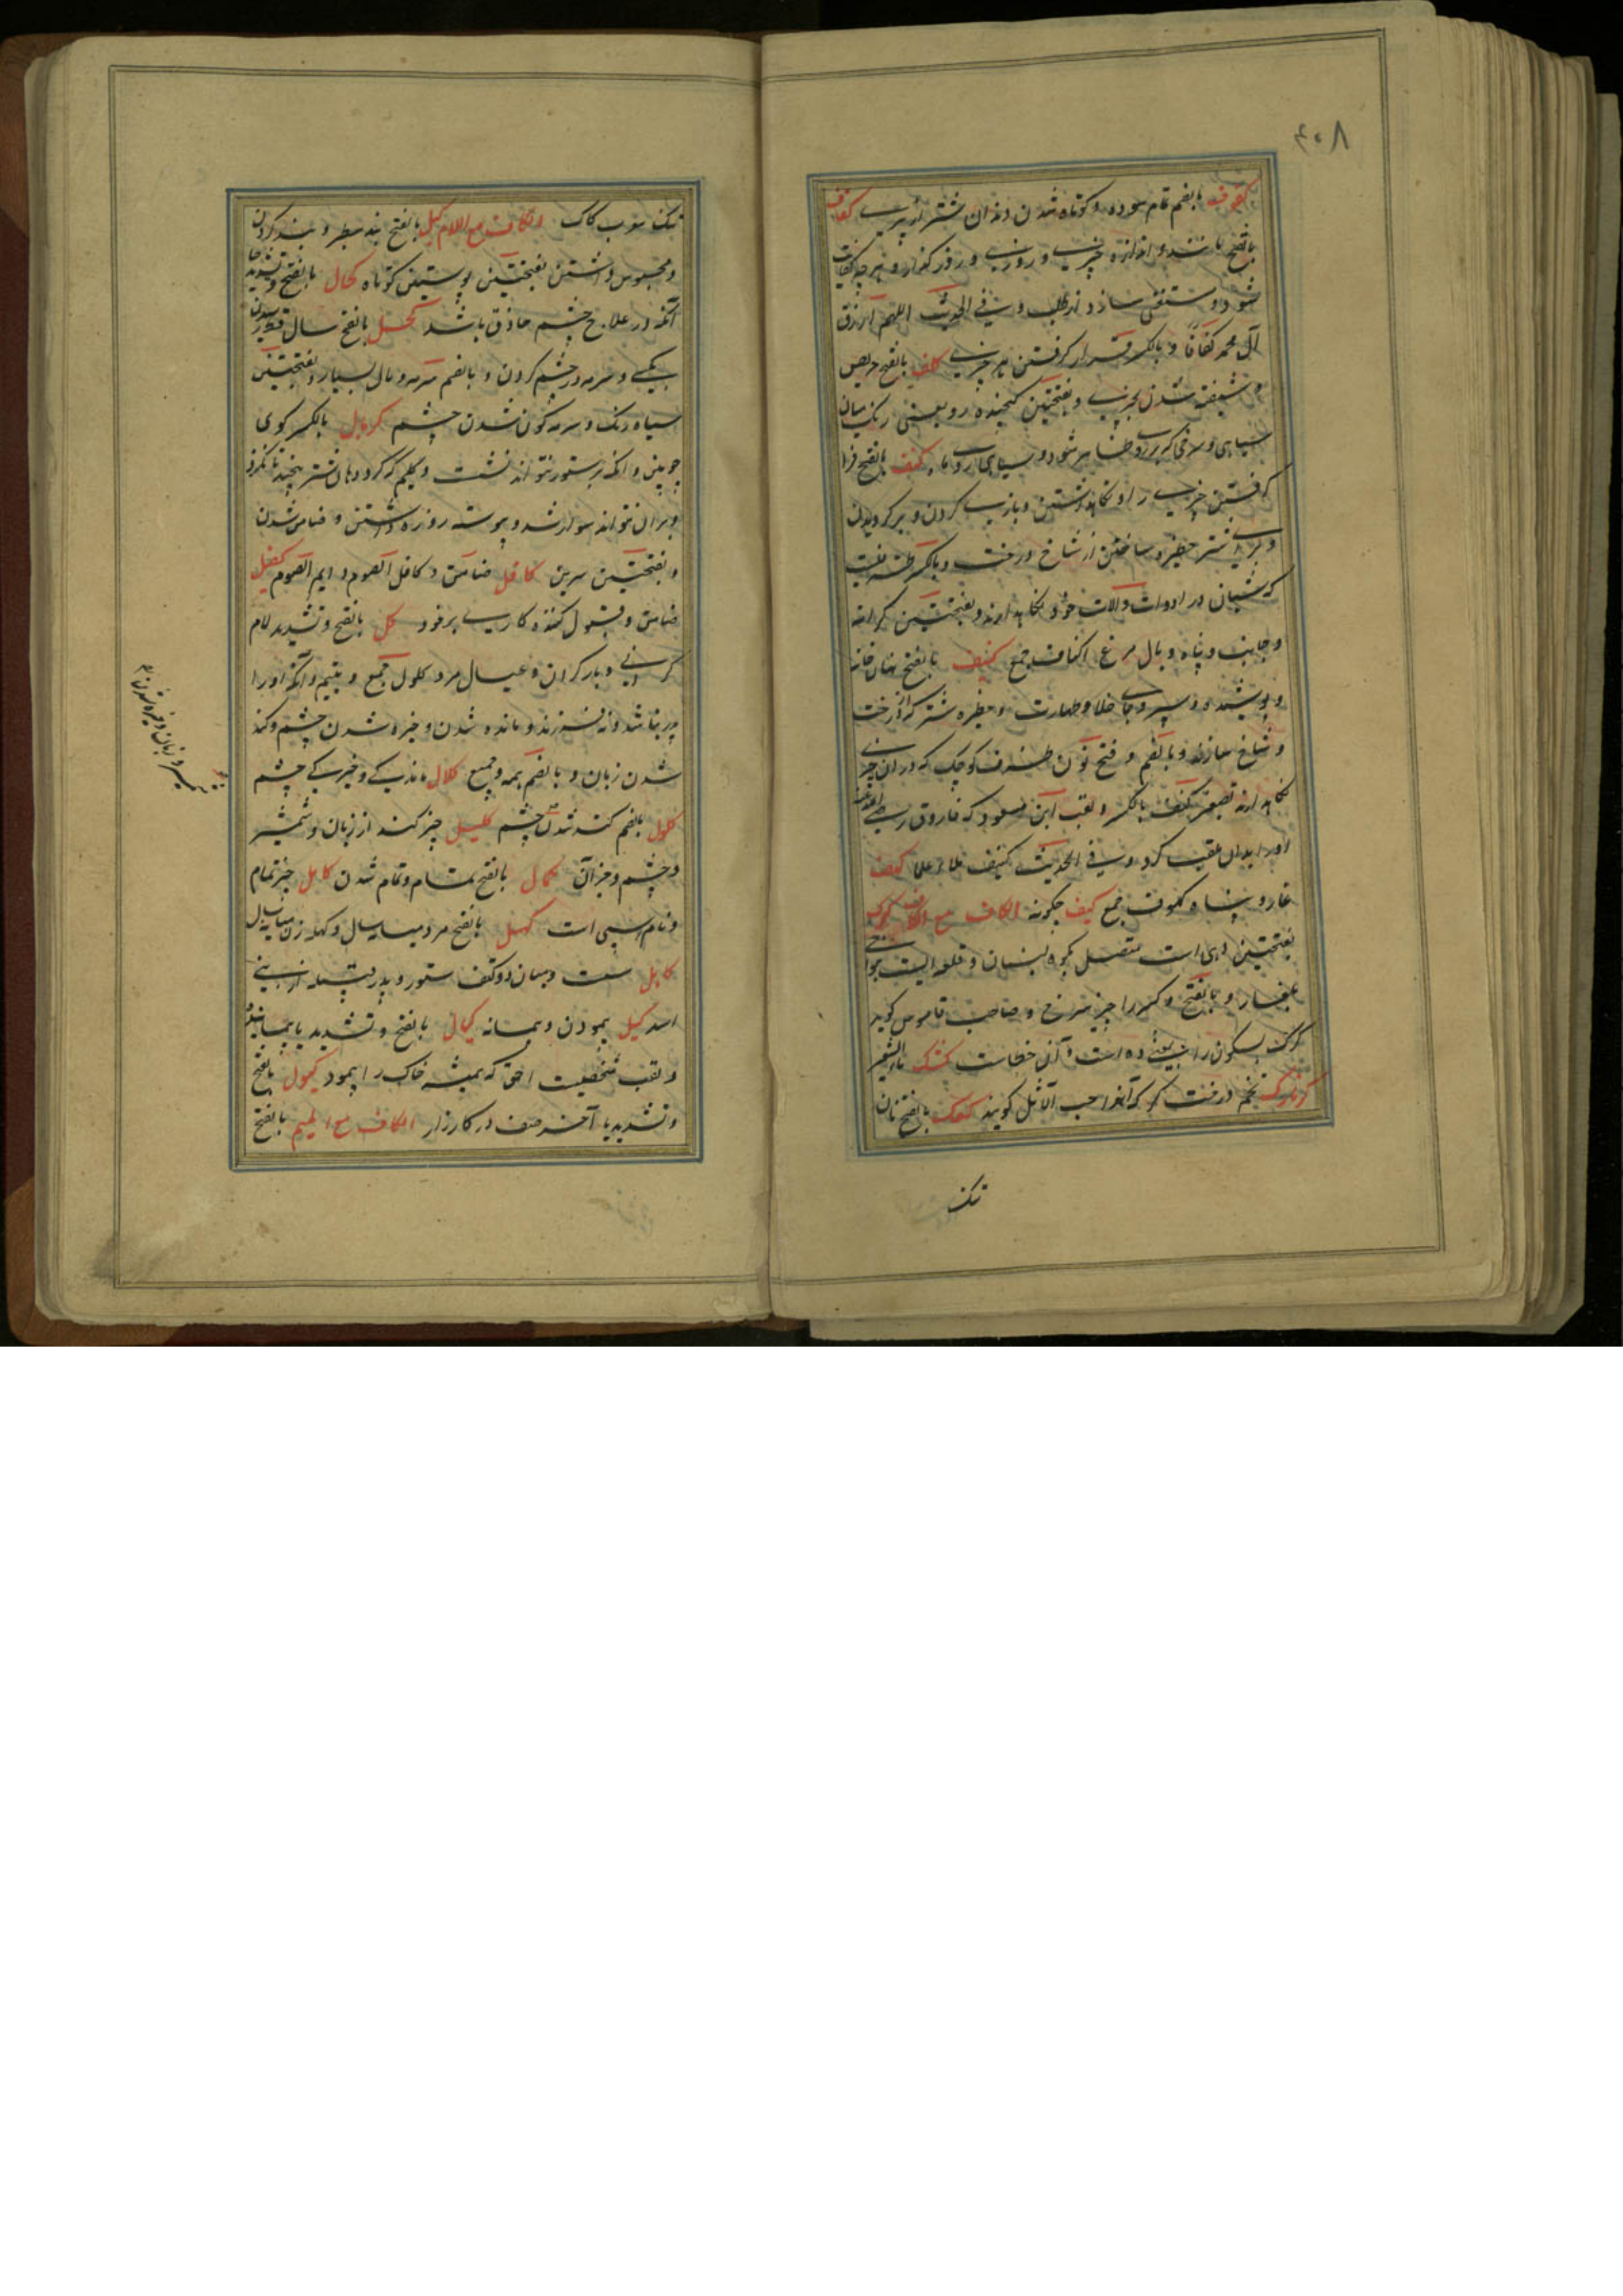 ۴۰۸
بالضم تمام سوده و کوتاه شدن دندان شتر از پیری کفاف
بالفتح مانند و اندازه چیزی و روزی و روز گذار و هر چه کفایت
شود و مستغنی سازد از طلب و فی الحدیث اللهم ارزق
آل محمد کفافا و بالکسر قرار گرفتن هر چیزی کلف بالفتح حریص
و شیفته شدن بچیزی و بفتحتین کنجیده رو یعنی رنگ میان
سیاهی و سرخی که بر رو ظاهر شود و سیاهی روی ماه کنف بالفتح فرا
گرفتن چیزی را و نگاهداشتن و یاری کردن و برگردیدن
و برای شتر حظیره ساختن از شاخ درخت و بالکسر
که شبان در ادوات و آلات خود نگاهدارد و بفتحتین کرانه
و جانب و پناه و بال مرغ اکناف جمع کنیف بالفتح نهان خانه
و پوشیده و سپر و جای خلا و طهارت و حظیره شتر که از درخت
و شاخ سازند و بالضم و فتح نون ظرف کوچک که در آن چیزی
نگاهدارند تصغیر کنف بالکسر و لقب ابن مسعود که فاروق رضی الله عنه
او را بدان ملقب کرد و فی الحدیث کنیف ملئ علما کهف
غار و پناه کهوف جمع کیف چگونه الکاف مع الکاف کرک
بفتحتین دهی است متصل بکوه لبنان و قلعه ایست بنواحی
بلقا و بالفتح و کسر را چیز سرخ و صاحب قاموس گوید
کرک بسکون را نیز دهی است و آن خطاست کشک ماء الشعیر
کزمازک تخم درخت گز که آنرا حب الاثل گویند کعک بالفتح نان
تنک
تنک سوب کاک الکاف مع اللام کبل بالفتح بند سطبر و بند کردن
و محبوس داشتن بفتحتین پوستین کوتاه کحال بالفتح و تشدید حا
آنکه در علاج چشم حاذق باشد کحل بالفتح سال قحط و رسیدن
بکسی و سرمه در چشم کردن و بالضم سرمه و مال بسیار و بفتحتین
سیاه رنگ و سرمه گون شدن چشم کربال بالکسر گوی
چوبین و آنکه بر ستور نتواند نشست و گلیم که گرد دهان شتر پیچند تا نگزد
و بران نتواند سوار شد و پیوسته روزه داشتن و ضامن شدن
و بفتحتین سرین کافل ضامن و کافل الصوم دایم الصوم کفیل
ضامن و قبول کننده کاری بر خود کل بالفتح و تشدید لام
گرانی و بار گران و عیال مرد کلول جمع و یتیم و آنکه او را
پدر نباشد و نه فرزند و مانده شدن و خیره شدن چشم و کند
شدن زبان و بالضم همه و جمیع کلال ماندگی و خیرگی چشم
کلول بالضم کند شدن چشم کلیل چیز کند از زبان و شمشیر
و چشم و جز آن کمال بالفتح تمام و تمام شدن کامل چیز تمام
و نام اسپی است کهل بالفتح مرد میانه سال و کهله زن میانه سال
کاهل سست و میان دو کتف ستور و پدر قبیله از بنی
اسد کیل پیمودن و پیمانه کیال بالفتح و تشدید یا پیماینده
و لقب شخصیست احمق که همیشه خاک را پیمود کیول بالفتح
و تشدید یا آخر صف در کارزار الکاف مع المیم بالفتح